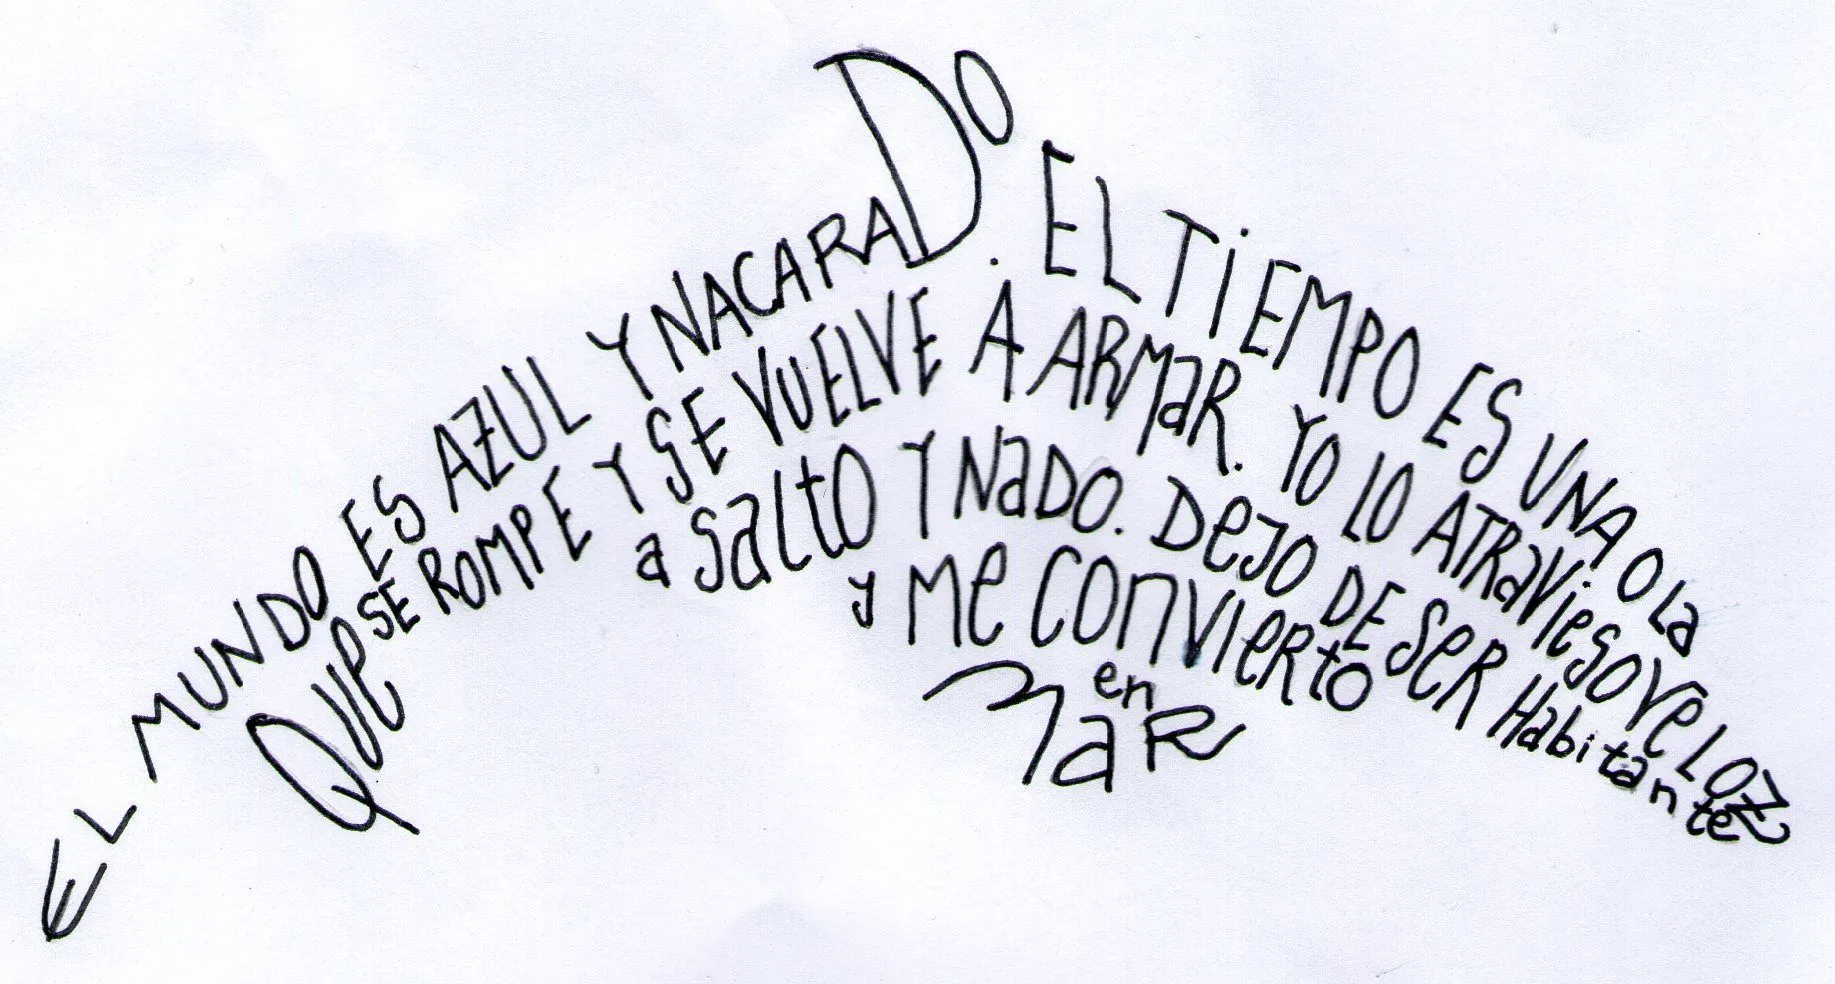 EL MUNDO ES AZUL Y NACARADO. EL TiEMPO ES UNA OLa
QUE SE ROMPE Y SE VUELVE A ARMaR. YO LO ATRaVieSO VeLOZ
a SaLtO Y NaDO. DeJO DE SeR Habitante
y Me COnVIeRtO
en
MaR